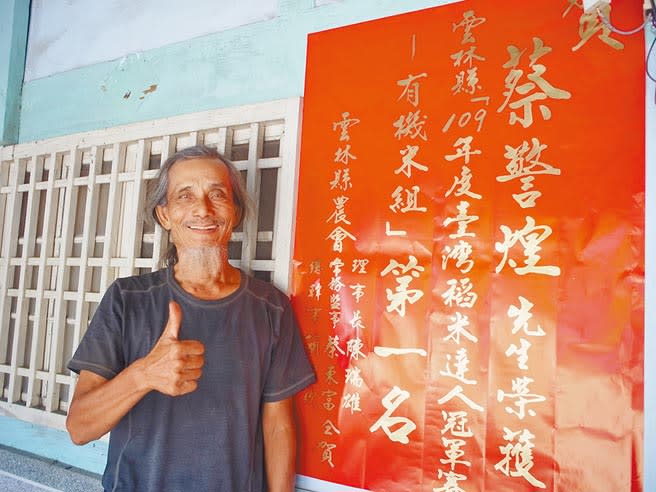 賀
蔡警煌先生榮獲
雲林縣「109年度臺灣稻米達人冠軍賽
－有機米組」第一名
雲林縣農會
理事長陳瑞雄
常務監事蔡東富全賀